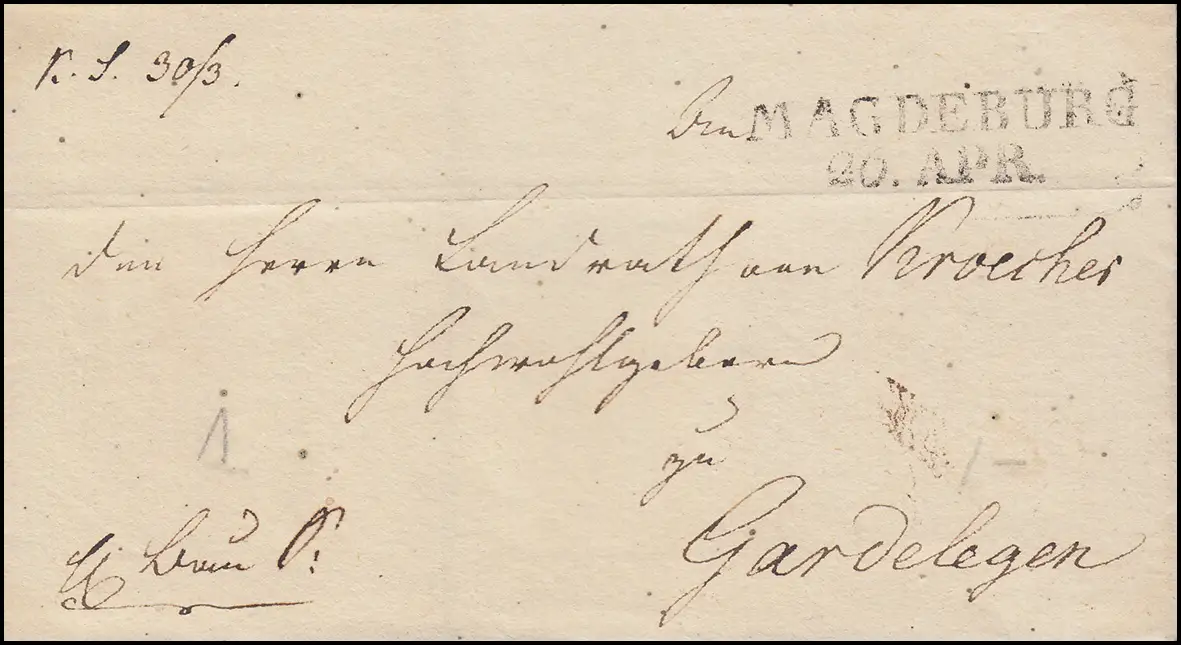 K. S. 30/3.
An MAGDEBURG
20. APR.
den Herrn Landrath von Kroecher
Hochwohlgeboren
zu
1
Gardelegen